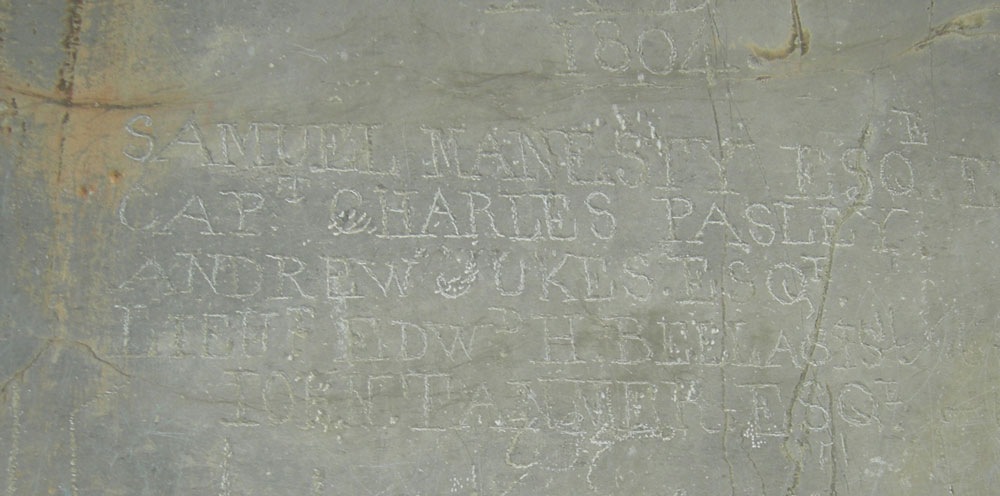 1804
SAMUEL MANESTY ESQE
CAPT CHARLES PASLEY
ANDREW JUKES. ESQR
LIEUT EDWD H. BELLASIS
JOHN TANNER. ESQR